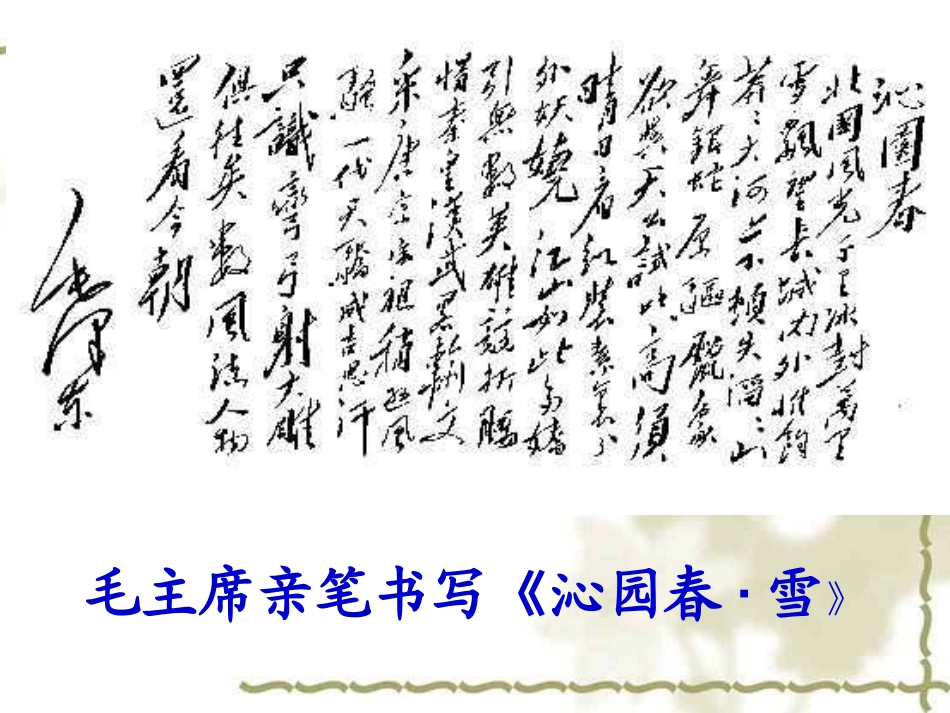 沁園春
北國風光千里冰封萬里
雪飄望長城内外惟餘
莽〻大河上下頓失滔〻山
舞銀蛇原驅臘象
欲與天公試比高須
晴日看紅裝素裹分
外妖嬈江山如此多嬌
引無數英雄競折腰
惜秦皇漢武略輸文
采唐宗宋祖稍遜風
騷一代天驕成吉思汗
只識彎弓射大雕
俱往矣數風流人物
還看今朝
毛澤東
毛主席亲笔书写《沁园春·雪》